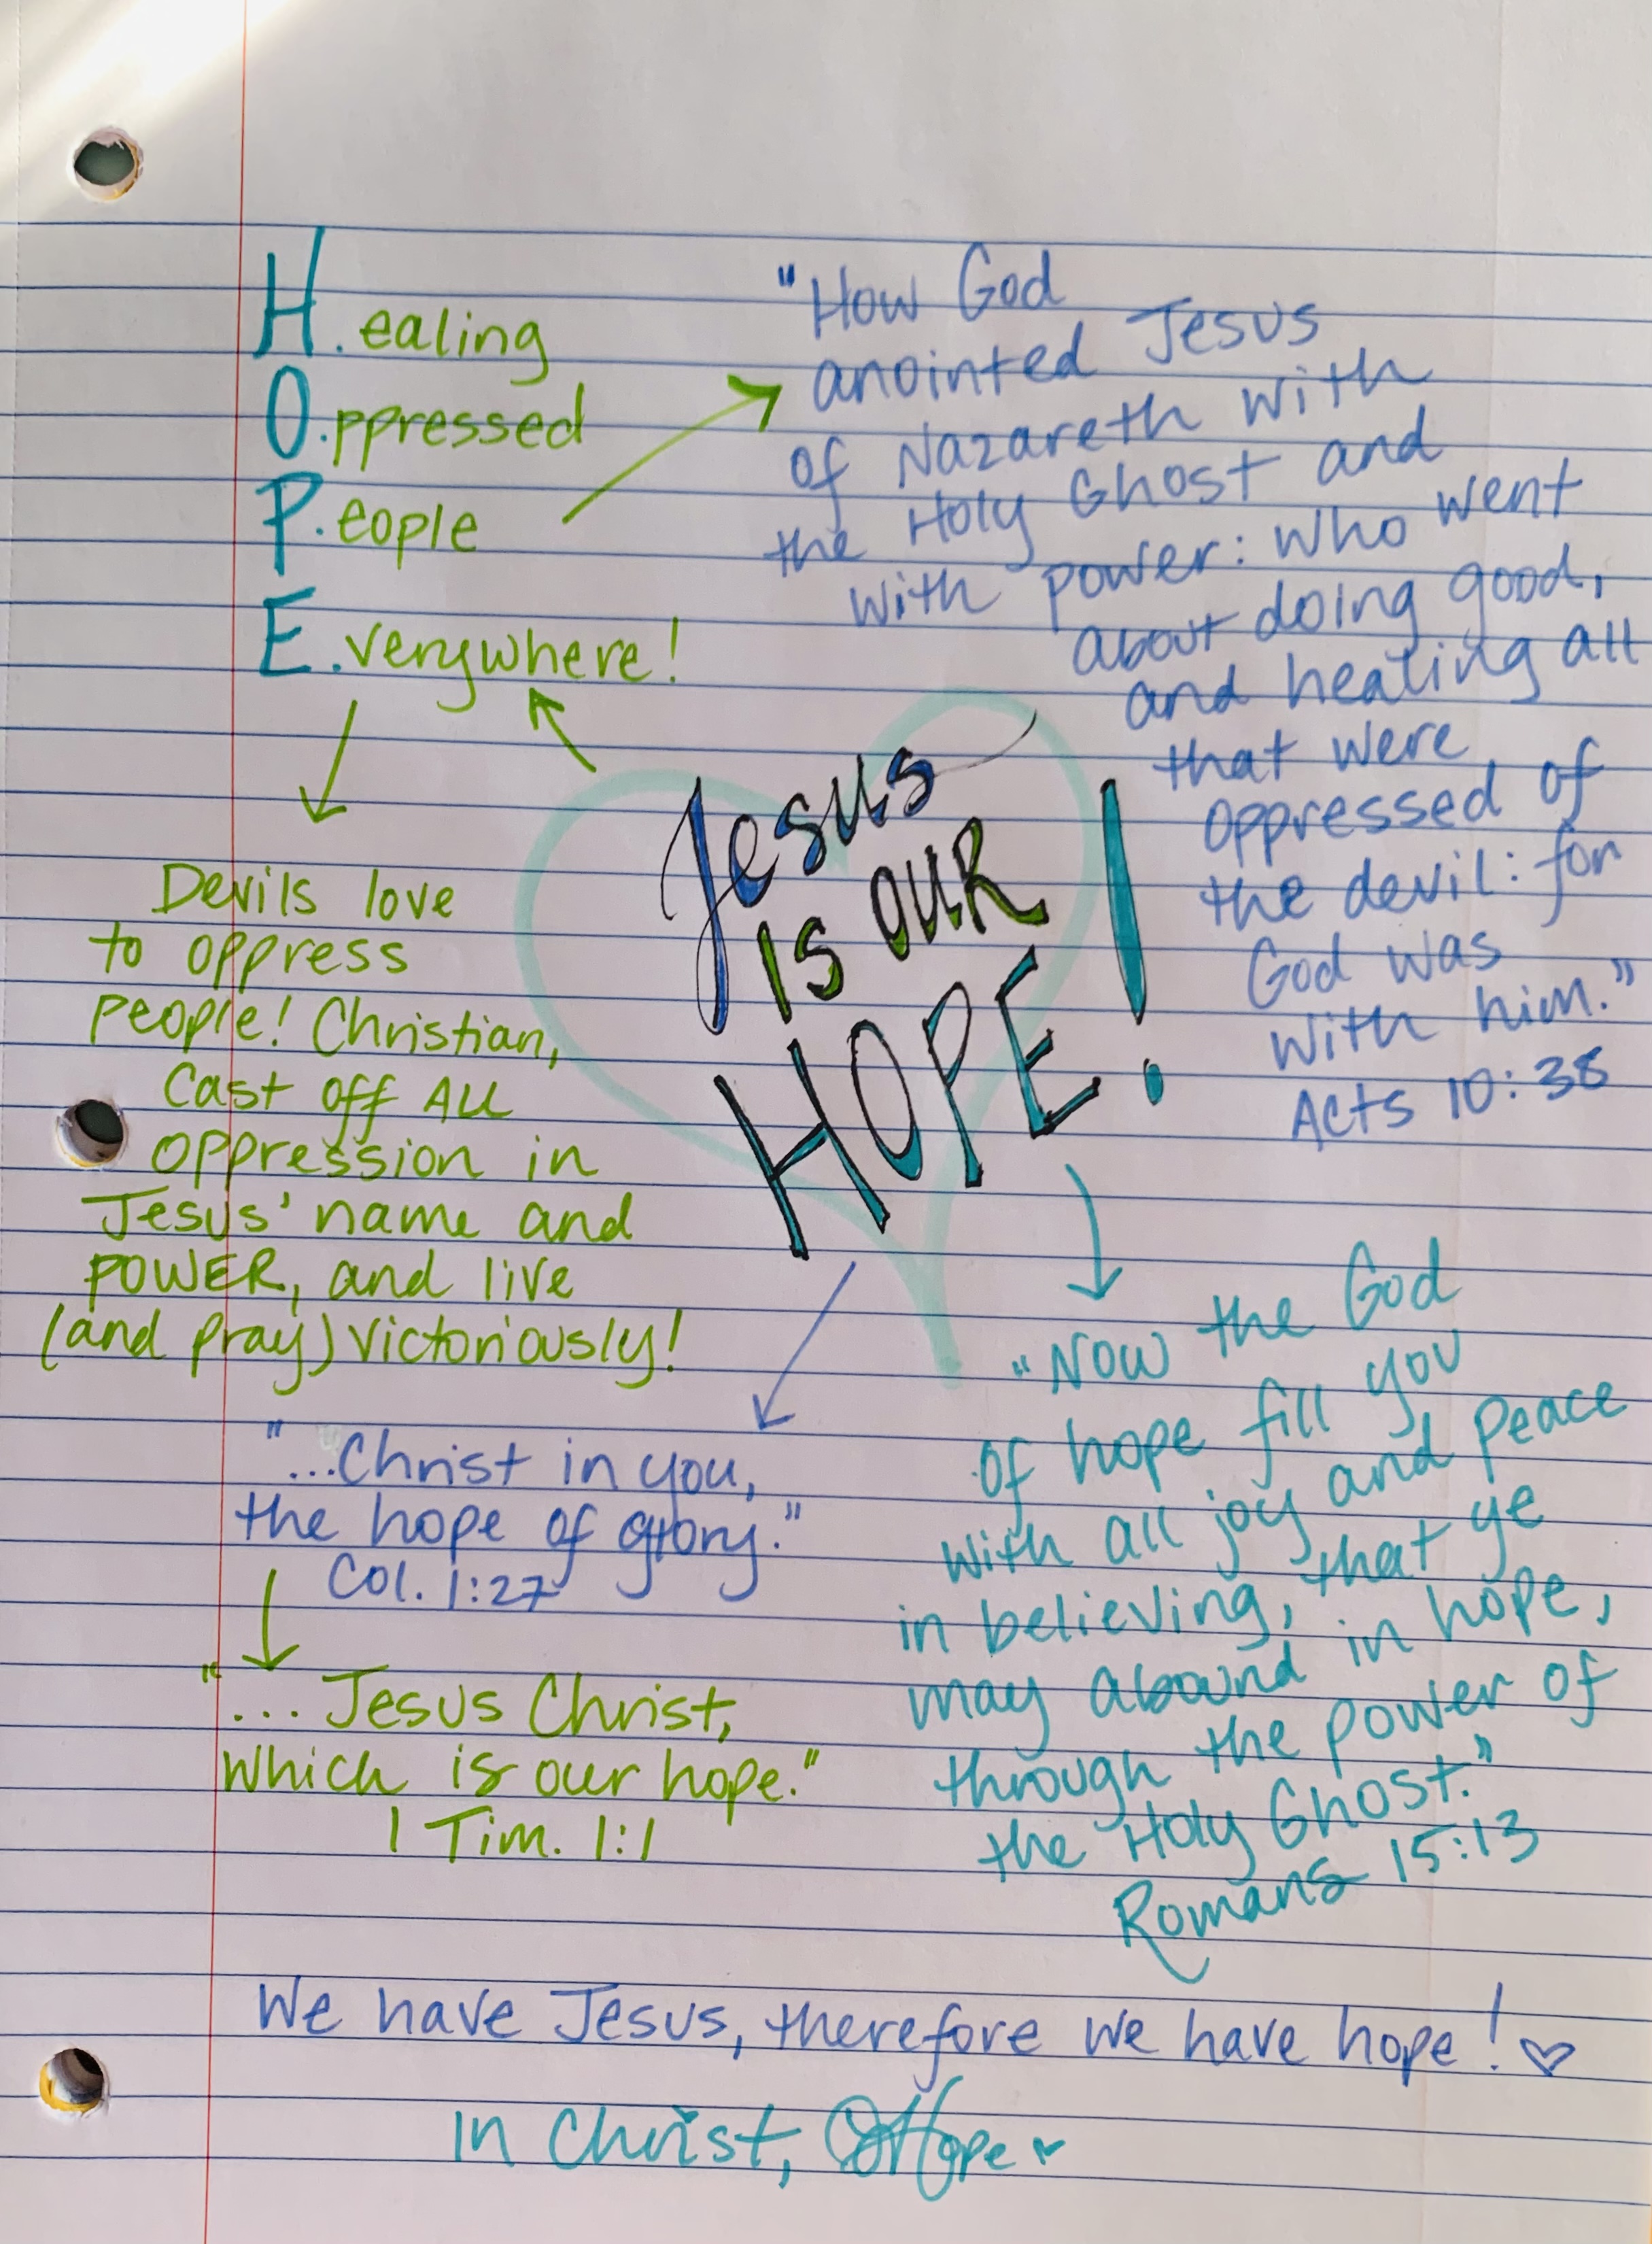 H.ealing
O.ppressed
P.eople
E.verywhere!
"How God
anointed Jesus
of Nazareth with
the Holy Ghost and
with power: who went
about doing good,
and healing all
that were
oppressed of
the devil: for
God was
with him."
Acts 10:38
Jesus
is our
HOPE!
Devils love
to oppress
people! Christian,
Cast off ALL
oppression in
Jesus' name and
POWER, and live
(and pray) victoriously!
"...Christ in you,
the hope of glory."
Col. 1:27
"... Jesus Christ,
which is our hope."
1 Tim. 1:1
"Now the God
of hope fill you
with all joy and peace
in believing, that ye
may abound in hope,
through the power of
the Holy Ghost."
Romans 15:13
We have Jesus, therefore we have hope! ♡
In Christ, Hope